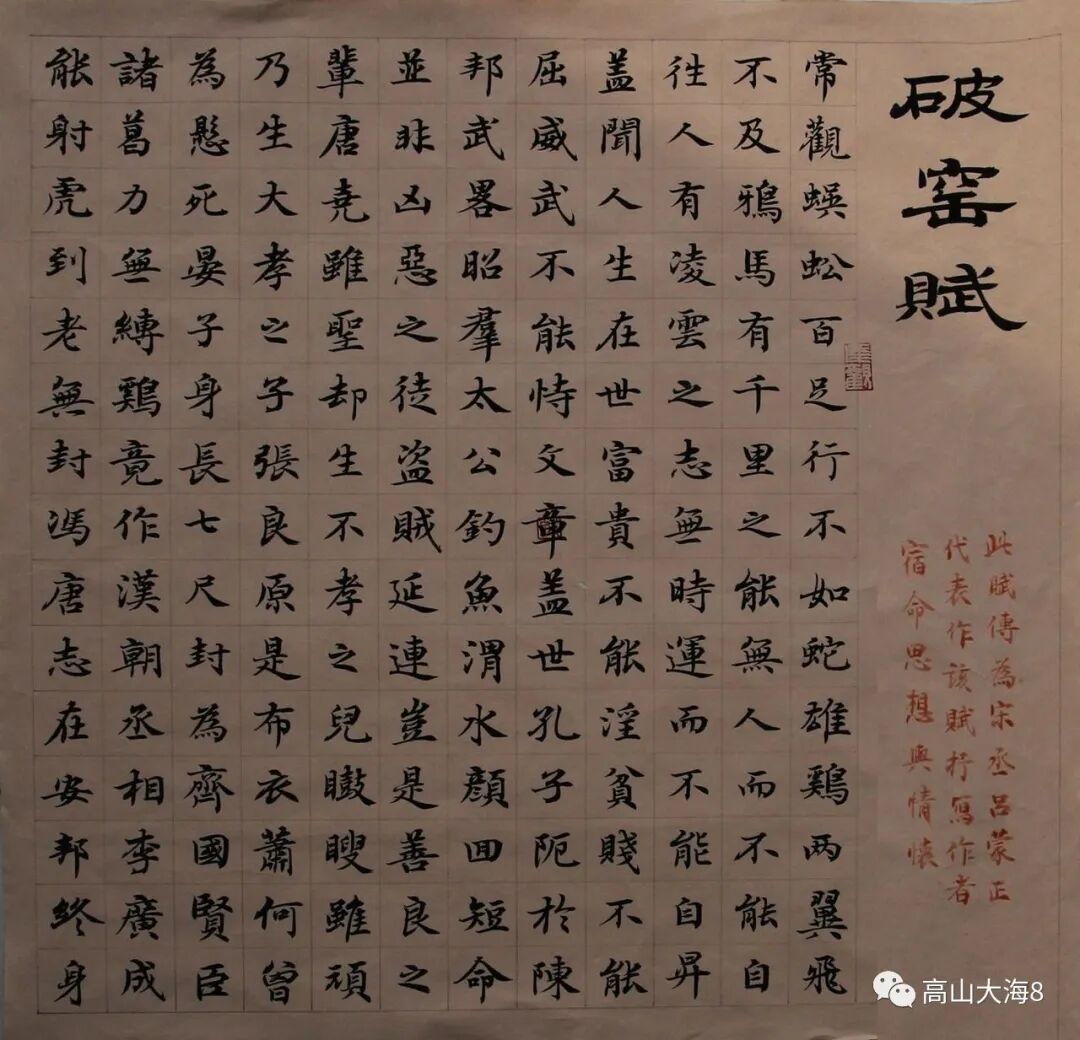 破窑賦
此賦傳為宋丞呂蒙正
代表作該賦抒寫作者
宿命思想與情懷
常觀蜈蚣百足行不如蛇雄鷄两翼飛
不及鴉馬有千里之能無人而不能自
往人有凌雲之志無時運而不能自昇
盖聞人生在世富貴不能淫貧賤不能
屈威武不能恃文章盖世孔子阨於陳
邦武畧昭羣太公釣魚渭水顏回短命
並非凶惡之徒盗賊延連豈是善良之
輩唐尭雖聖却生不孝之兒瞰瞍雖頑
乃生大孝之子張良原是布衣蕭何曾
為懸死晏子身長七尺封為齊國賢臣
諸葛力無縛鷄竟作漢朝丞相李廣成
能射虎到老無封馮唐志在安邦終身
高山大海8